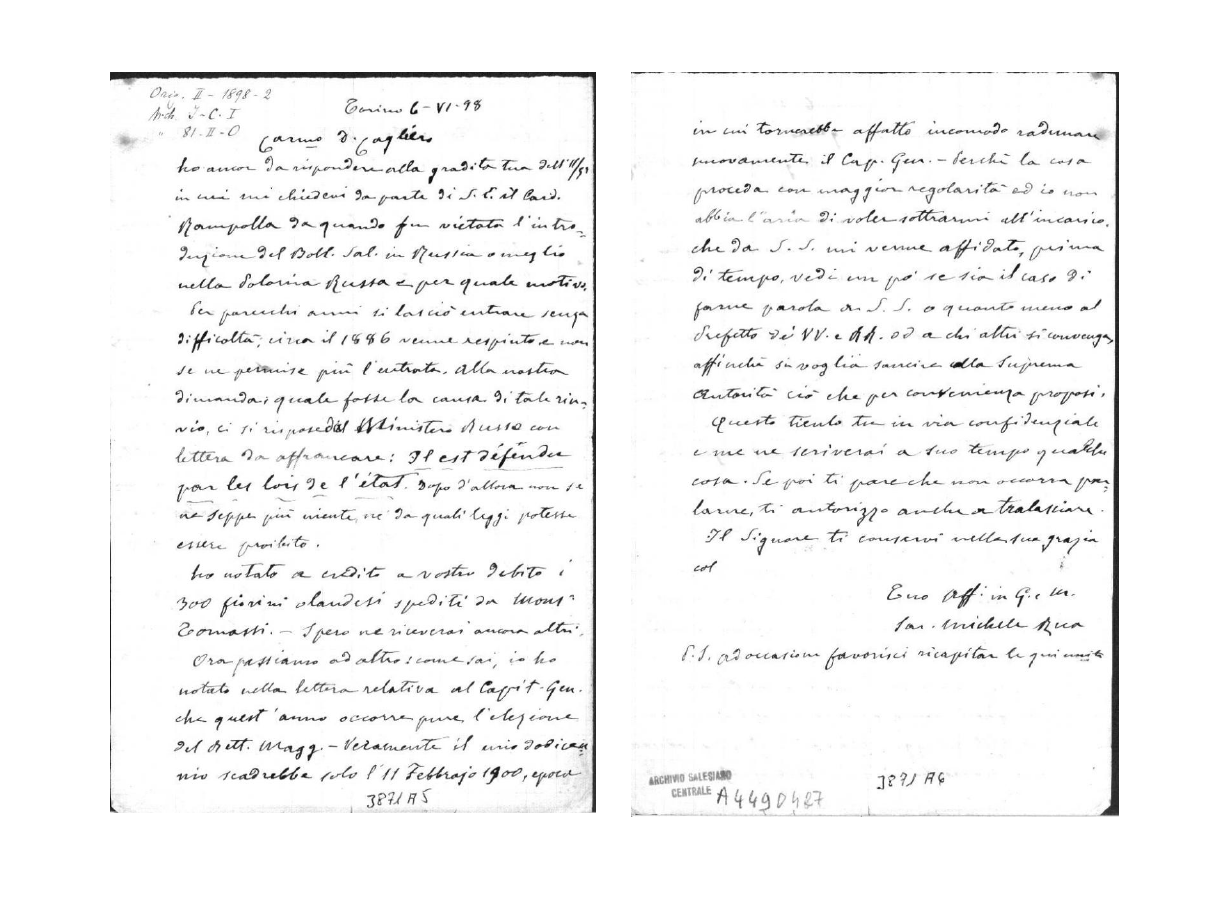 Orig. II - 1898 - 2
Arch. I - C. I
" 81 - II - O
Torino 6 - VI - 98
Carmo D. Cagliero
ho ancor da rispondere alla gradita tua dell'11/5
in cui mi chiedevi da parte di S. E. il Card.
Rampolla da quando fu vietata l'intro=
duzione del Boll. Sal. in Russia o meglio
nella Polonia Russa e per quale motivo.
Per parecchi anni si lasciò entrare senza
difficoltà; circa il 1886 venne respinto e non
se ne permise più l'entrata. Alla nostra
dimanda: quale fosse la causa di tale rin=
vio, ci si rispose dal Ministero Russo con
lettera da affrancare: Il est défendu
par les lois de l'état. Dopo d'allora non se
ne seppe più niente, nè da quali leggi potesse
essere proibito.
Ho notato a credito a vostro debito i
300 fiorini olandesi spediti da Monsr
Tomassi. - Spero ne riceverai ancora altri.
Ora passiamo ad altro: come sai, io ho
notato nella lettera relativa al Capit. Gen.
che quest'anno occorre pure l'elezione
del Rett. Magg. - Veramente il mio dodicen=
nio scadrebbe solo l'11 Febbrajo 1900, epoca
3871 A5
in cui tornerebbe affatto incomodo radunare
nuovamente il Cap. Gen. - Perchè la cosa
proceda con maggior regolarità ed io non
abbia l'aria di voler sottrarmi all'incarico
che da S. S. mi venne affidato, prima
di tempo, vedi un pò se sia il caso di
farne parola a S. S. o quanto meno al
Prefetto dei VV. e RR. od a chi altri si convenga,
affinchè si voglia sancire dalla Suprema
Autorità ciò che per convenienza proposi.
Questo tientelo in via confidenziale
e me ne scriverai a suo tempo qualche
cosa. Se poi ti pare che non occorra par=
larne, ti autorizzo anche a tralasciare.
Il Signore ti conservi nella sua grazia
col
Tuo Aff. in G. e M.
Sac. Michele Rua
P.S. ad occasione favorisci ricapitar le qui unite
ARCHIVIO SALESIANO
CENTRALE A4490427
3871 A6